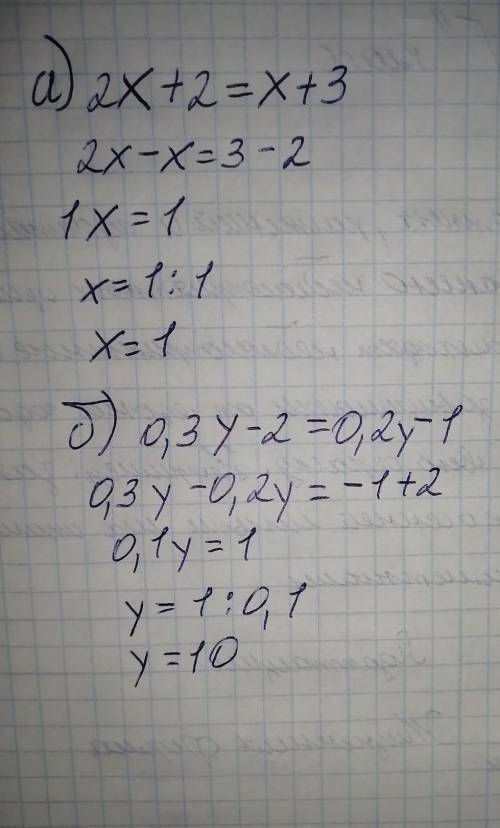 а) 2x+2=x+3
2x-x=3-2
1x=1
x=1:1
x=1
б) 0,3y-2=0,2y-1
0,3y-0,2y=-1+2
0,1y=1
y=1:0,1
y=10